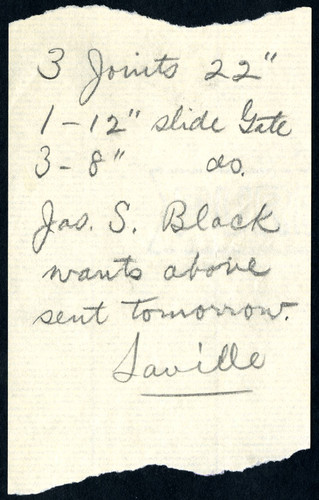 3 Joints 22"
1 - 12" slide Gate
3 - 8" do.
Jas. S. Black
wants above
sent tomorrow.
Saville